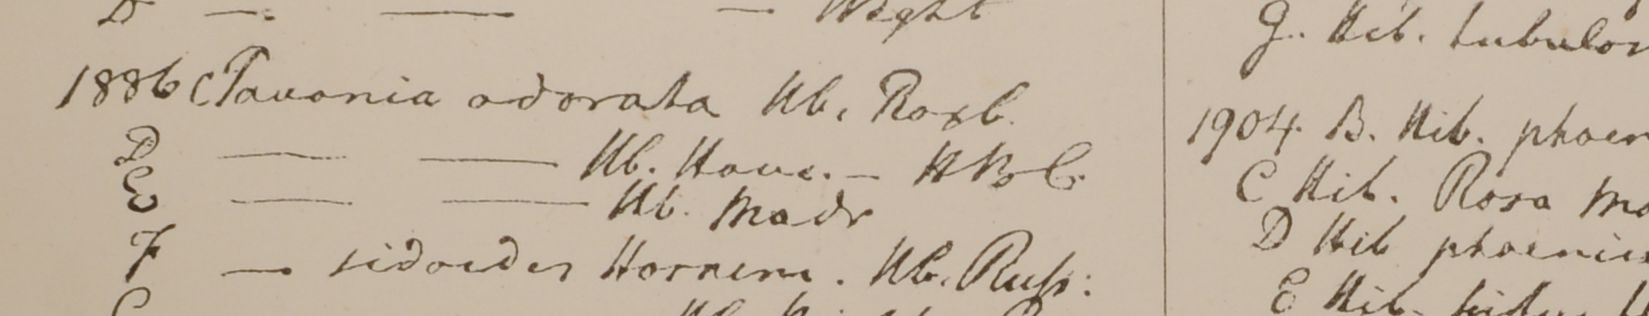 D — — — Wight
1886 C Pavonia odorata Hb. Roxb.
D — — Hb. Ham. — HBC.
E — — Hb. Madr
F — sidoides Hornem. Hb. Russ:
G. Hib. tubulos
1904. B. Hib. phoen
C Hib. Rosa
D Hib phoenic
E Hib.